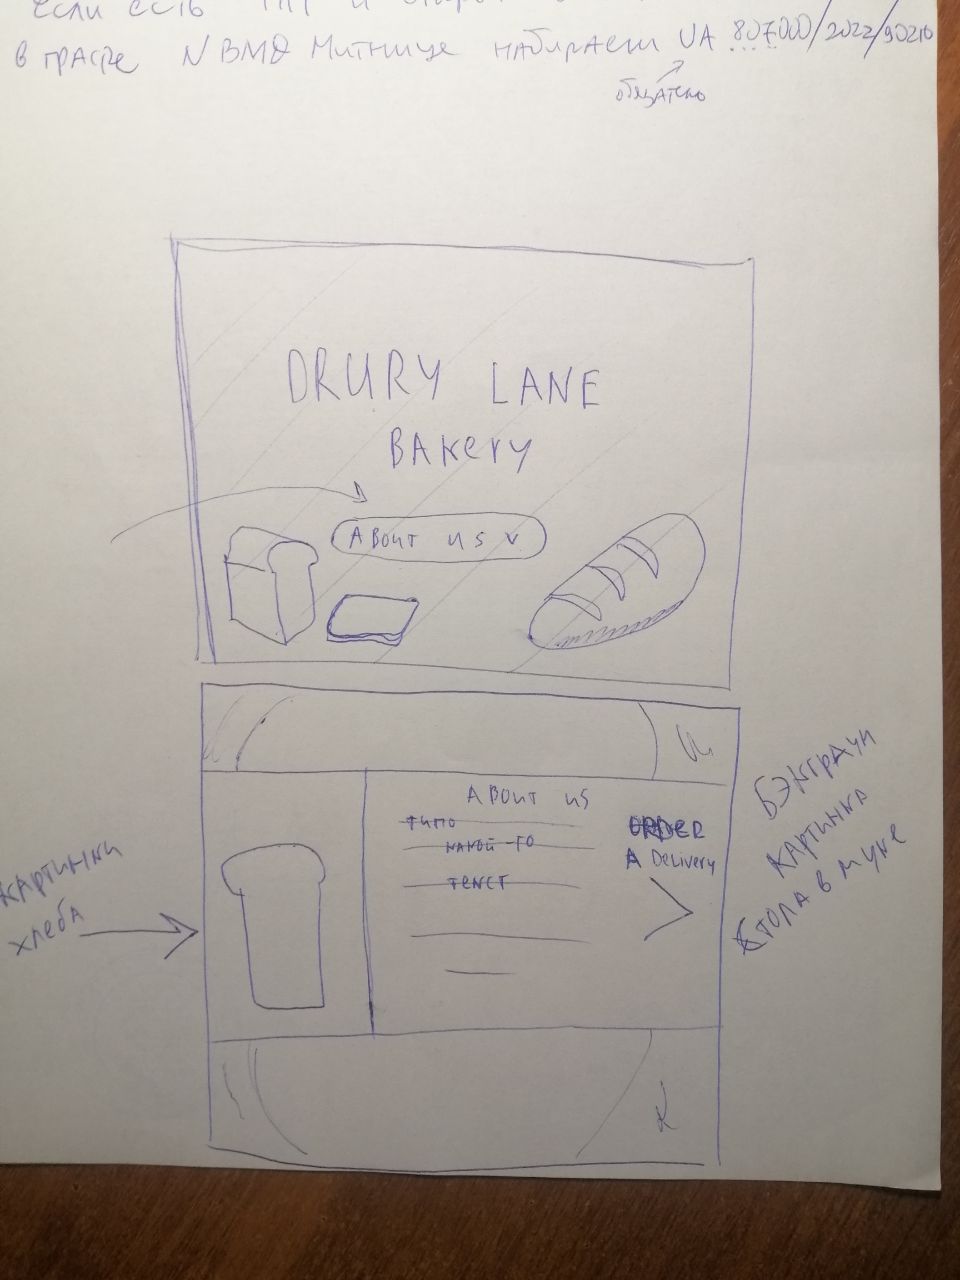 если есть
в графе N ВМД Митнице набираем UA 807000/2022/90210
обязательно
DRURY LANE
BAKERY
ABOUT US v
ABOUT US
типо
какой-то
текст
ORDER
A Delivery
картинки
хлеба
Бэкграун
картинка
стола в муке